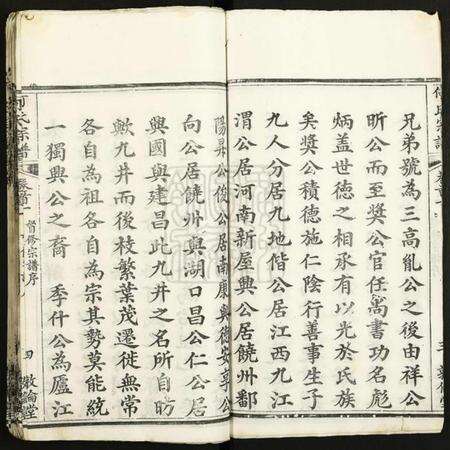 兄弟號為三高胤公之後由祥公
昕公而至獎公官任尚書功名彪
炳蓋世德之相承有以光於氏族
矣獎公積德施仁陰行善事生子
九人分居九地偕公居江西九江
渭公居河南新屋興公居饒州鄱
陽昇公俊公居南康與德安享公
向公居饒州與湖口昌公仁公居
興國與建昌此九井之名所自昉
歟九井而後枝繁葉茂遷徙無常
各自為祖各自為宗其勢莫能統
一獨興公之裔季什公為廬江
何氏宗譜
卷首
督修宗譜序
四
敦倫堂